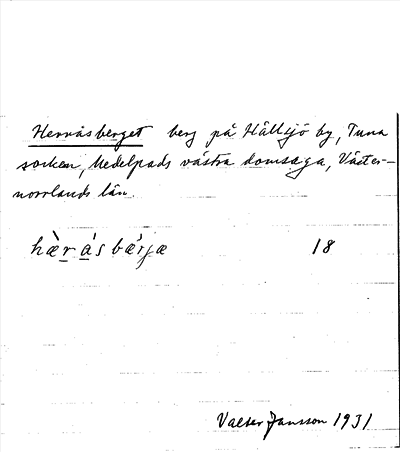 Herråsberget berg på Hällsjö by, Tuna
socken, Medelpads västra domsaga, Väster-
norrlands län.
hæ̀rá̀sbæ̀rjæ 18
Valter Jansson 1931